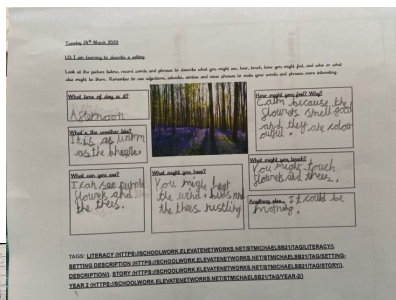 Tuesday 24th March 2020
LO: I am learning to describe a setting
Look at the picture below, record words and phrases to describe what you might see, hear, touch, how you might feel, and who or what
else might be there. Remember to use adjectives, adverbs, similes and noun phrases to make your words and phrases more interesting.
What time of day is it?
Afternoon
What's the weather like?
It is as warm
as the breeze.
What can you see?
I can see purple
flowers and
the trees.
What might you hear?
You might hear
the wind, birds and
the trees rustling
How might you feel? Why?
Calm because the
flowers smell good
and they are colou
ourful.
What might you touch?
You might touch
flowers and trees.
Anything else... It could be
morning.
TAGS: LITERACY (HTTPS://SCHOOLWORK.ELEVATENETWORKS.NET/STMICHAELSB21/TAG/LITERACY/),
SETTING DESCRIPTION (HTTPS://SCHOOLWORK.ELEVATENETWORKS.NET/STMICHAELSB21/TAG/SETTING-
DESCRIPTION/), STORY (HTTPS://SCHOOLWORK.ELEVATENETWORKS.NET/STMICHAELSB21/TAG/STORY/),
YEAR 2 (HTTPS://SCHOOLWORK.ELEVATENETWORKS.NET/STMICHAELSB21/TAG/YEAR-2/)